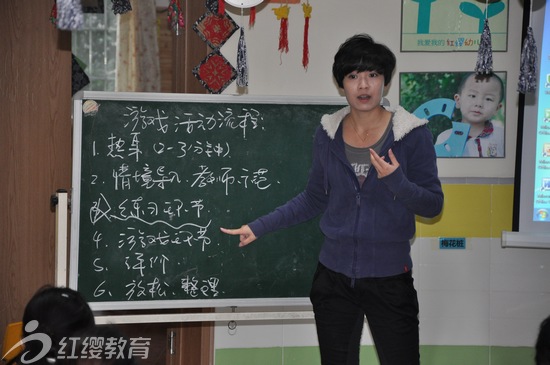 我爱我的红缨幼儿
游戏活动流程:
1. 热身 (2-3分钟)
2. 情境导入 教师示范
3. 练习环节
4. 游戏环节
5. 评价
6. 放松、整理.
梅花桩
红缨教育